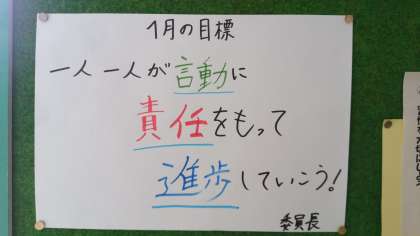 1月の目標
一人一人が言動に
責任をもって
進歩していこう!
委員長